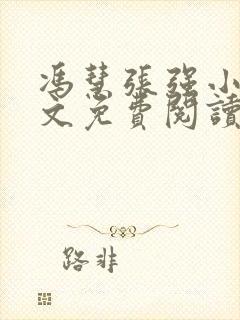 馮慧張强小
文免費閱讀
路非